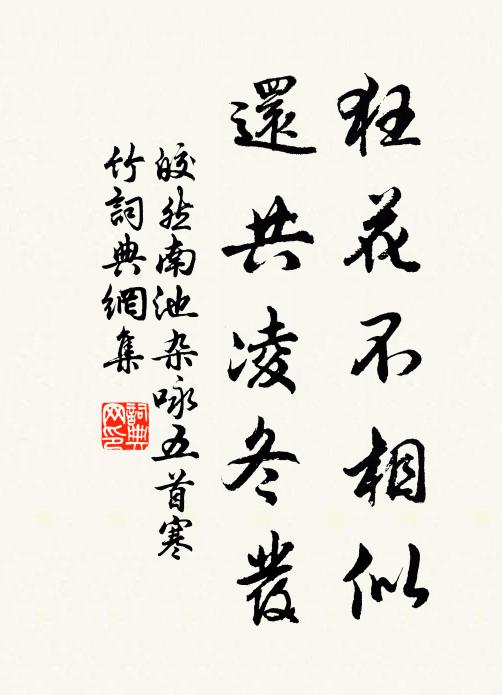 狂花不相似
還共凌冬發
皎然南池杂咏五首寒
竹詞典網集
詞典
网印